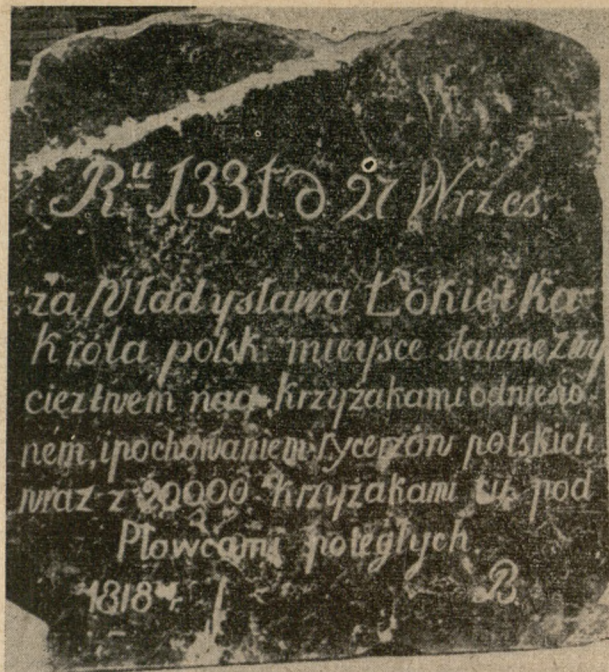 Rᵘ 1331. d. 27 Wrzes.
za Władysława Łokietka
króla polsk: mieysce sławne Zwy
cięztwem nad Krzyżakami odniesio-
ném, i pochowaniem rycerzów polskich
wraz z 20000 Krzyżakami tu pod
Płowcami poległych.
1818 r. B.